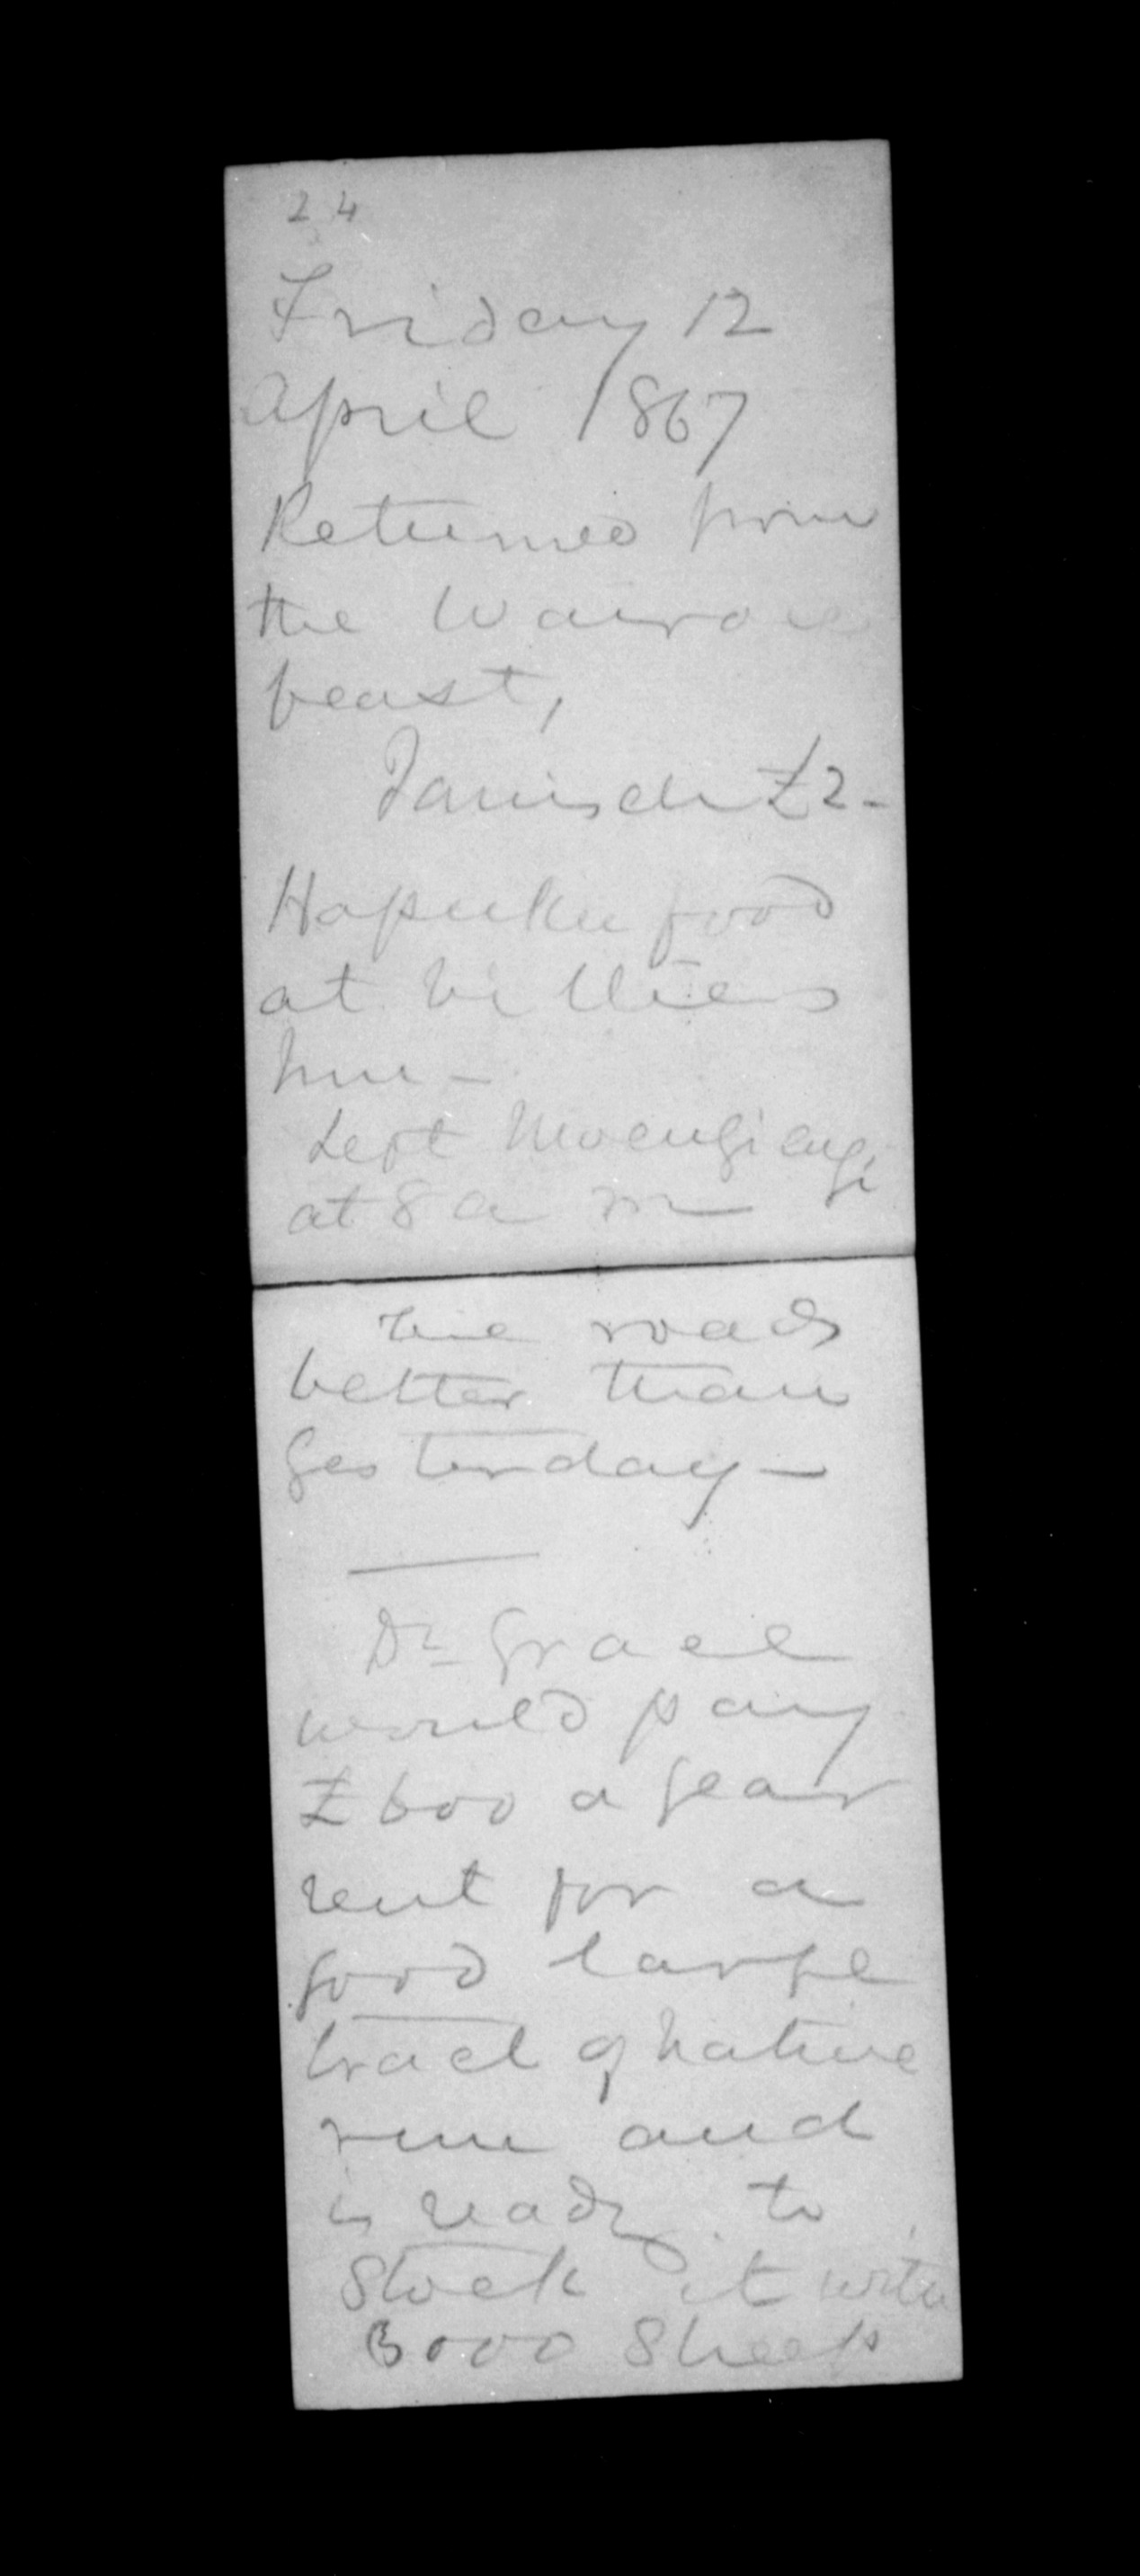 24
Friday 12
April 1867
Returned from
the Wairoa
feast,
£2-
Hapuku food
at
Left Moengiangi
at 8 a m
The roads
better than
yesterday -
Dr Grace
would pay
£600 a year
rent for a
good large
tract of native
run and
is ready to
Stock it with
3000 Sheep